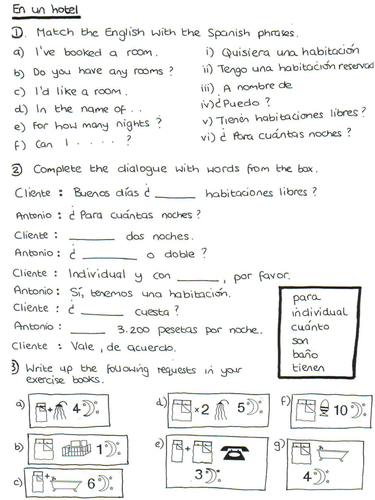 En un hotel
① Match the English with the Spanish phrases.
a) I've booked a room.
b) Do you have any rooms?
c) I'd like a room.
d) In the name of . .
e) For how many nights?
f) Can I . . . . ?
i) Quisiera una habitación
ii) Tengo una habitación reservad
iii) A nombre de
iv) ¿Puedo?
v) Tienen habitaciones libres?
vi) ¿Para cuántas noches?
② Complete the dialogue with words from the box.
Cliente : Buenos días ¿ ______ habitaciones libres?
Antonio : ¿Para cuántas noches?
Cliente : ______ dos noches.
Antonio : ¿ ______ o doble?
Cliente : Individual y con ______, por favor.
Antonio : Sí, tenemos una habitación.
Cliente : ¿ ______ cuesta?
Antonio : ______ 3.200 pesetas por noche.
Cliente : Vale, de acuerdo.
para
individual
cuánto
son
baño
tienen
③ Write up the following requests in your
exercise books.
a) + 4
b) 1
c) + 6
d) x2 5
e) + 3
f) 10
g) 4